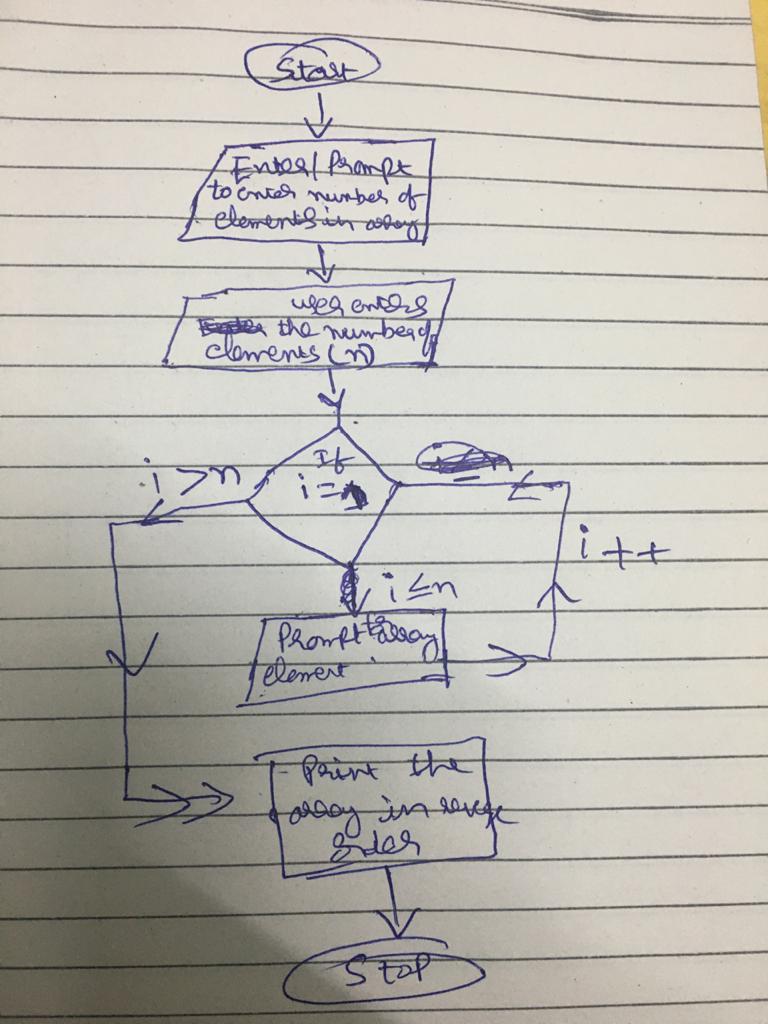 Start
Enter/Prompt
to enter number of
elements in array
user enters
the number of
elements (n)
If
i =
i > n
i ≤ n
i ++
Prompt to array
element
Print the
array in reverse
order
Stop